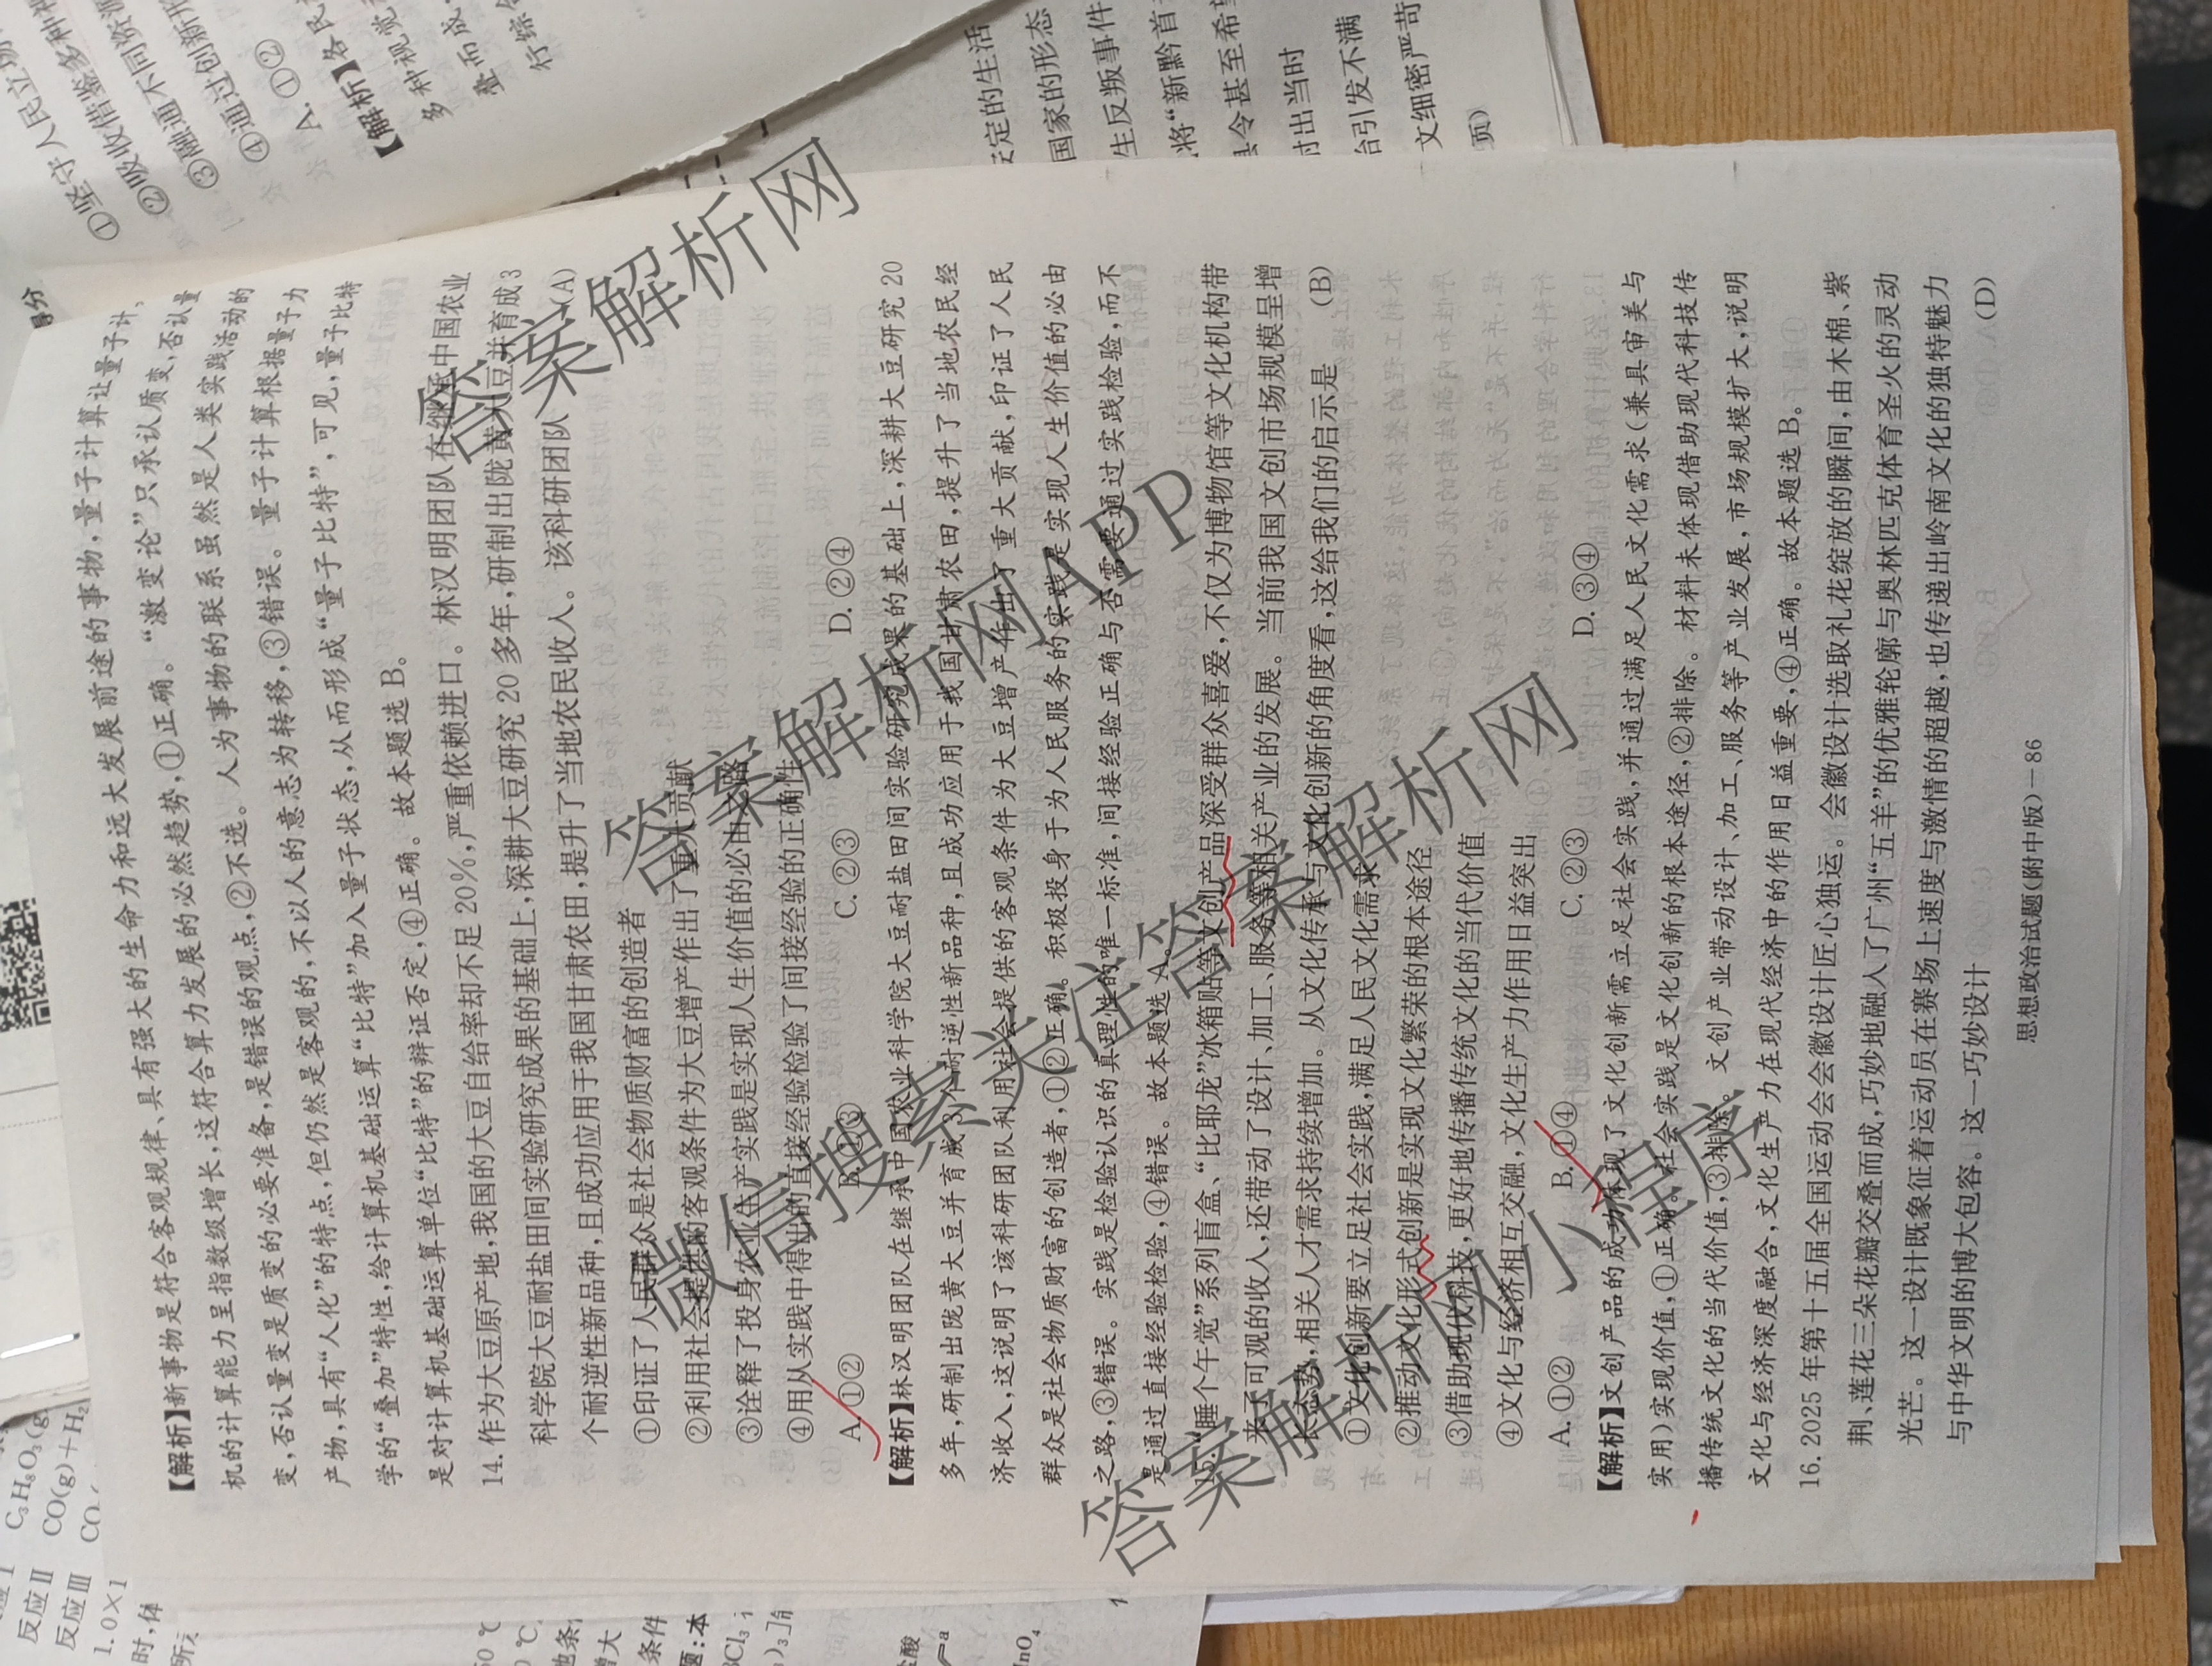 【解析】新事物是符合客观规律、具有强大的生命力和远大发展前途的事物,量子计算让量子计
机的计算能力呈指数级增长,这符合算力发展的必然趋势,①正确。“激变论”只承认质变,否认量
变,否认量变是质变的必要准备,是错误的观点,②不选。人为事物的联系虽然是人类实践活动的
产物,具有“人化”的特点,但仍然是客观的,不以人的意志为转移,③错误。量子计算根据量子力
学的“叠加”特性,给计算机基础运算“比特”加入量子状态,从而形成“量子比特”,可见,量子比特
是对计算机基础运算单位“比特”的辩证否定,④正确。故本题选 B。
14.作为大豆原产地,我国的大豆自给率却不足 20%,严重依赖进口。林汉明团队在继承中国农业
科学院大豆耐盐田间实验研究成果的基础上,深耕大豆研究 20 多年,研制出陇黄大豆并育成 3
个耐逆性新品种,且成功应用于我国甘肃农田,提升了当地农民收入。该科研团队 (A)
①印证了人民群众是社会物质财富的创造者
②利用社会提供的客观条件为大豆增产作出了重大贡献
③诠释了投身农业生产实践是实现人生价值的必由之路
④用从实践中得出的直接经验检验了间接经验的正确性
A.①② B.①③ C.②③ D.②④
【解析】林汉明团队在继承中国农业科学院大豆耐盐田间实验研究成果的基础上,深耕大豆研究 20
多年,研制出陇黄大豆并育成 3 个耐逆性新品种,且成功应用于我国甘肃农田,提升了当地农民经
济收入,这说明了该科研团队利用社会提供的客观条件为大豆增产作出了重大贡献,印证了人民
群众是社会物质财富的创造者,①②正确。积极投身于为人民服务的实践是实现人生价值的必由
之路,③错误。实践是检验认识的真理性的唯一标准,间接经验正确与否需要通过实践检验,而不
是通过直接经验检验,④错误。故本题选 A。
15.“睡个午觉”系列盲盒、“比耶龙”冰箱贴等文创产品深受群众喜爱,不仅为博物馆等文化机构带
来了可观的收入,还带动了设计、加工、服务等相关产业的发展。当前我国文创市场规模呈增
长态势,相关人才需求持续增加。从文化传承与文化创新的角度看,这给我们的启示是 (B)
①文化创新要立足社会实践,满足人民文化需求
②推动文化形式创新是实现文化繁荣的根本途径
③借助现代科技,更好地传播传统文化的当代价值
④文化与经济相互交融,文化生产力作用日益突出
A.①② B.①④ C.②③ D.③④
【解析】文创产品的成功体现了文化创新需立足社会实践,并通过满足人民文化需求(兼具审美与
实用)实现价值,①正确。社会实践是文化创新的根本途径,②排除。材料未体现借助现代科技传
播传统文化的当代价值,③排除。文创产业带动设计、加工、服务等产业发展,市场规模扩大,说明
文化与经济深度融合,文化生产力在现代经济中的作用日益重要,④正确。故本题选 B。
16.2025 年第十五届全国运动会会徽设计匠心独运。会徽设计选取礼花绽放的瞬间,由木棉、紫
荆、莲花三朵花瓣交叠而成,巧妙地融入了广州“五羊”的优雅轮廓与奥林匹克体育圣火的灵动
光芒。这一设计既象征着运动员在赛场上速度与激情的超越,也传递出岭南文化的独特魅力
与中华文明的博大包容。这一巧妙设计 (D)
思想政治试题(附中版)－86
①坚守人民立场
②吸收借鉴多种
③融通不同
④通过创新
A.①②
【解析】各民
多种视觉
定的生活
国家的形态
生反叛事件
将“新黔首
县令甚至希望
时出当时
台引发不满
文细密严苛
页)
C₃H₈O₃(g
CO(g)+H₂
反应Ⅱ
反应Ⅲ
1.0×1
答案解析网
答案解析网APP
微信搜索关注答案解析网
答案解析网小程序